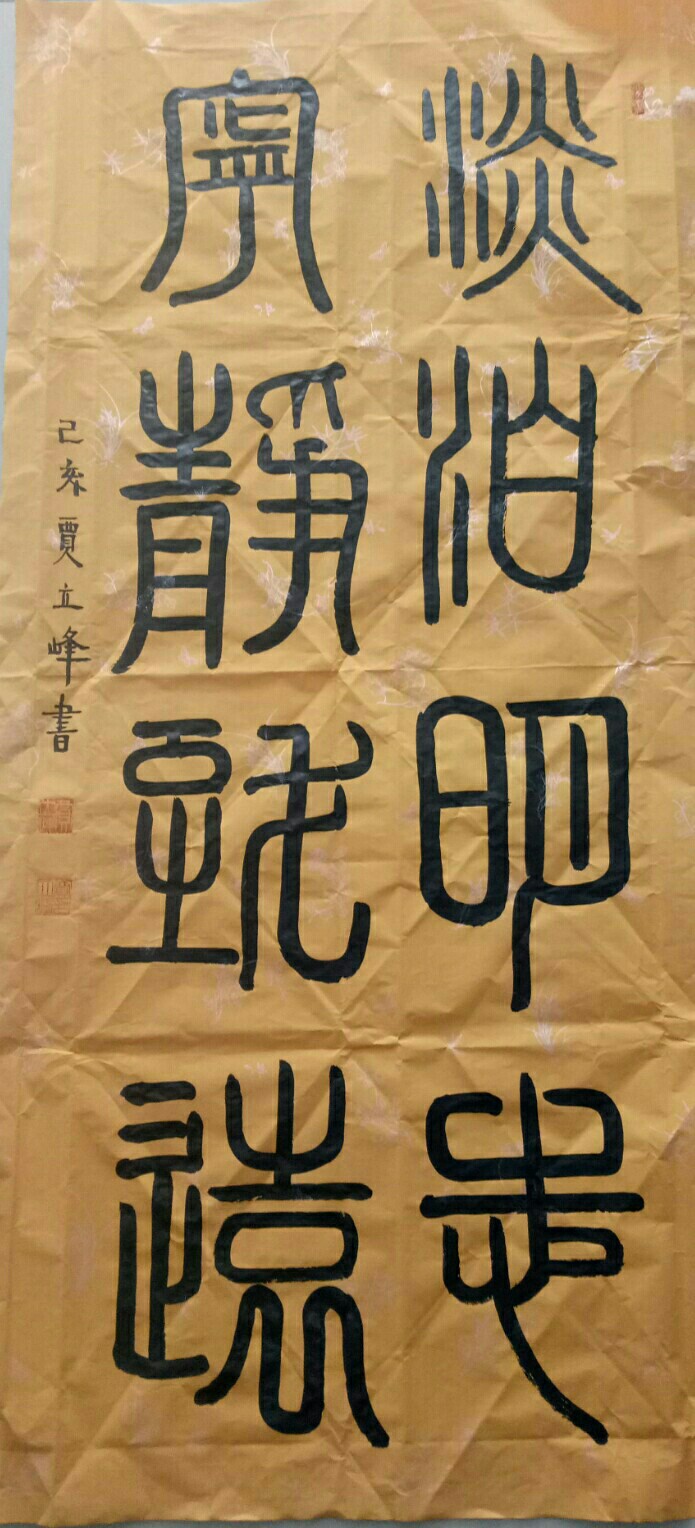 淡泊明
寧靜致遠
己亥賈立峰書